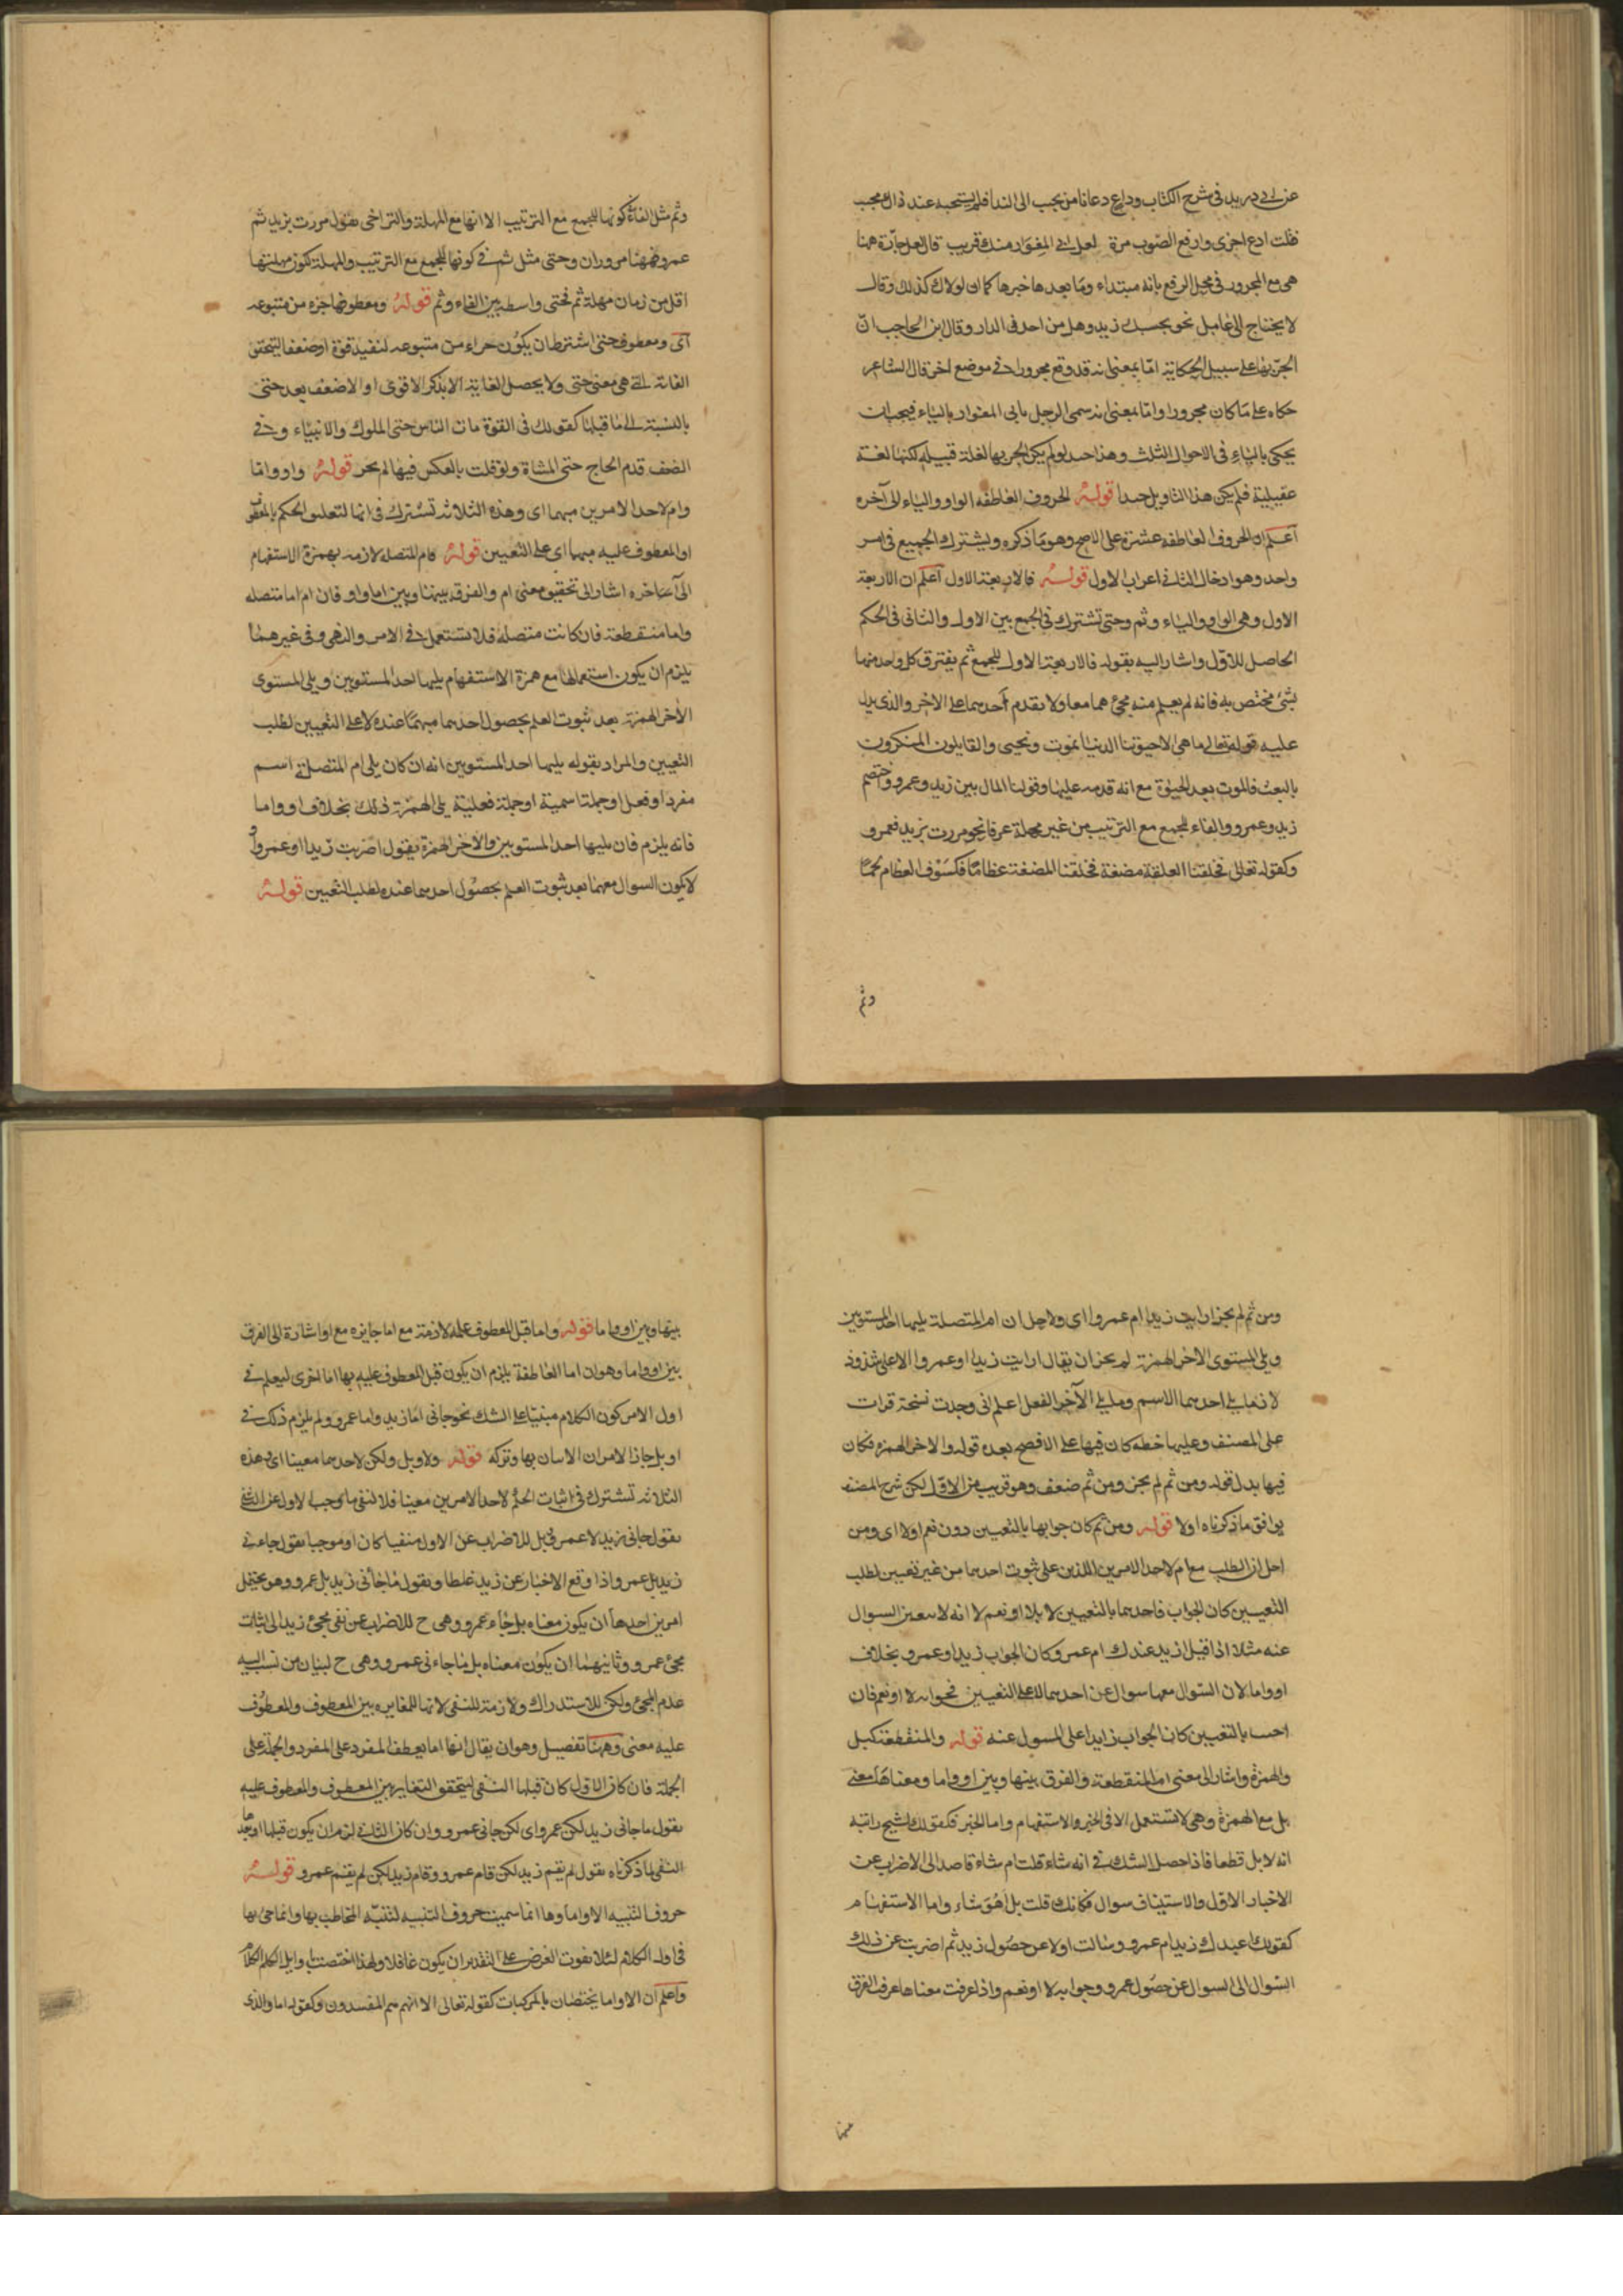 عن ابى دريد فى شرح الكتاب وداع دعانا من يجيب الى الندا فلم يستجبه عند ذاك مجيب
فقلت ادع اخرى وارفع الصوت مرة لعل ابى المغوار منك قريب قال لعل جارة هنا
هى مع المجرور فى محل الرفع بانه مبتداء وما بعدها خبرها كما ان لولاك كذلك وقال
لا يحتاج الى عامل نحو بحسبك زيد وهل من احد فى الدار وقال ابن الحاجب ان
الجر بها على سبيل الحكاية اما بمعنى انه قد وقع مجرورا فى موضع اخر قال الشاعر
حكاه على ما كان مجرورا واما بمعنى انه سمى الرجل بابى المغوار بالياء فيجب ان
يحكى بالياء فى الاحوال الثلث وهذا جيد لو لم يكن الجر بها لغة قبيلة لكنها لغة
عقيلية فلم يكن هذا التاويل جيدا قوله الحروف العاطفه الواو والياء الى آخره
اعلم ان الحروف العاطفه عشرة على الاصح وهو ما ذكره ويشترك الجميع فى امر
واحد وهو ادخال الثانى فى اعراب الاول قوله فالاربعة الاول اعلم ان الاربعة
الاول وهى الواو والياء وثم وحتى تشترك فى الجمع بين الاول والثانى فى الحكم
الحاصل للاول واشار اليه بقوله فالاربعة الاول للجمع ثم يفترق كل واحد منها
بشئ مختص به فانه لم يعلم منه مجئ هما معا ولا تقدم احدهما على الاخر والذى يدل
عليه قوله تعالى ما هى الا حيوتنا الدنيا نموت ونحيى والقايلون المنكرون
بالبعث فالموت بعد الحيوة مع انه قدمه عليها وقولنا المال بين زيد وعمرو واختصم
زيد وعمرو والفاء للجمع مع الترتيب من غير مهلة عرفا نحو مررت بزيد فعمرو
وكقوله تعالى فخلقنا العلقة مضغة فخلقنا المضغة عظاما فكسونا العظام لحما
وثم
وثم مثل الفاء فى كونها للجمع مع الترتيب الا انها مع المهلة والتراخى نقول مررت بزيد ثم
عمرو فههنا مروران وحتى مثل ثم فى كونها للجمع مع الترتيب والمهلة لكون مهلتها
اقل من زمان مهلة ثم فحتى واسطة بين الفاء وثم قوله ومعطوفها جزء من متبوعه
اى ومعطوف حتى اشترط ان يكون جزاء من متبوعه لتفيد قوة او ضعفا ليتحقق
الغاية التى هى معنى حتى ولا يحصل الغاية الا بذكر الاقوى او الاضعف بعد حتى
بالنسبة الى ما قبلها كقولك فى القوة مات الناس حتى الملوك والانبياء وفى
الضعف قدم الحاج حتى المشاة ولو قلت بالعكس فيها لم يجز قوله واو واما
وام لاحد الامرين مبهما اى وهذه الثلاثة تشترك فى انها لتعلق الحكم بالمعطوف
او المعطوف عليه مبهما اى على التعيين قوله فام المتصله لازمة بهمزة الاستفهام
الى آخره اشار الى تحقيق معنى ام والفرق بينها وبين اما واو فان ام اما متصله
واما منقطعة فان كانت متصله فلا تستعمل فى الامر والنهى وفى غيرهما
يلزم ان يكون استعمالها مع همزة الاستفهام يليها احد المستويين ويلى المستوى
الاخر الهمزة بعد ثبوت العلم بحصول احدهما مبهما عنده لا على التعيين لطلب
التعيين والمراد بقوله يليها احد المستويين انه ان كان يلى ام المتصلة اسم
مفرد او فعل او جملة اسمية او جملة فعلية يلى الهمزة ذلك بخلاف او واما
فانه يلزم فان يليها احد المستويين والاخر الهمزة نقول اضربت زيدا او عمروا
لا يكون السوال معهما بعد ثبوت العلم بحصول احدهما عنده لطلب التعيين قوله
ومن ثم لم يجز ارايت زيدا ام عمروا اى ولاجل ان ام المتصلة يليها احد المستويين
ويلى المستوى الاخر الهمزة لم يجز ان يقال ارايت زيدا او عمروا الا على شذوذ
لان ما يلى احدهما الاسم وما يلى الآخر الفعل اعلم انى وجدت نسخة قرات
على المصنف وعليها خطه كان فيها على الافصح بعده قوله والاخر الهمزة فكان
فيها بدل قوله ومن ثم لم يجز ومن ثم ضعف وهو قريب من الاول لكن شرح المصنف
يوافق ما ذكرناه اولا قوله ومن ثم كان جوابها بالتعيين دون نعم اولا اى ومن
اجل ان الطلب مع ام لاحد الامرين اللذين على ثبوت احدهما من غير تعيين لطلب
التعيين كان الجواب فاحدهما بالتعيين لا بلا او نعم لا انه لا تعين السوال
عنه مثلا اذا قيل ازيد عندك ام عمرو كان الجواب زيد او عمرو بخلاف
او واما لان السوال معهما سوال عن احدهما لا على التعيين فجوابه لا او نعم فان
اجيب بالتعيين كان الجواب زايدا على المسول عنه قوله والمنقطعة كبل
والهمزة واشار الى معنى ام المنقطعة والفرق بينها وبين او واما ومعناها معنى
بل مع الهمزة وهى لا تستعمل الا فى الخبر والاستفهام واما الخبر فكقولك لشبح رايته
انه لابل قطعا فاذا حصل الشك فى انه شاء قلت ام شاء قاصدا الى الاضراب عن
الاخبار الاول والاستيناف سوال فكانك قلت بل اهو شاء واما الاستفهام
كقولك اعندك زيد ام عمرو وسالت اولا عن حصول زيد ثم اضربت عن ذلك
السوال الى السوال عن حصول عمرو وجوابه لا او نعم واذا عرفت معناها عرف الفرق
بينها
بينها وبين او واما قوله واما قبل المعطوف عليه لازمة مع اما جايزه مع او اشارة الى الفرق
بين او واما وهو ان اما العاطفة يلزم ان يكون قبل المعطوف عليه بها اما اخرى ليعلم فى
اول الامر كون الكلام مبنيا على الشك نحو جانى اما زيد واما عمرو ولم يلزم ذلك فى
او بل جاز الامران الاتيان بها وتركه قوله ولا وبل ولكن لاحدهما معينا اى وهذه
الثلاثة تشترك فى اثبات الحكم لاحد الامرين معينا فلا لنفى ما وجب الاول عن الثانى
نقول جانى زيد لا عمرو وبل للاضراب عن الاول منفيا كان او موجبا نقول جاءنى
زيد بل عمرو واذا وقع الاخبار عن زيد غلطا ونقول ما جأنى زيد بل عمرو وهو يحتمل
امرين احدهما ان يكون معناه بل جاء عمرو وهى ح للاضراب عن نفى مجئ زيد الى اثبات
مجئ عمرو وثانيهما ان يكون معناه بل ما جاءنى عمرو وهى ح لبيان من نسب اليه
عدم المجئ ولكن للاستدراك ولازمة للنفى لانها للمغايره بين المعطوف والمعطوف
عليه معنى وههنا تفصيل وهو ان يقال انها اما يعطف المفرد على المفرد والجملة على
الجملة فان كان الاول كان قبلها النفى ليتحقق التغاير بين المعطوف والمعطوف عليه
نقول ما جانى زيد لكن عمرو اى لكن جانى عمرو وان كان الثانى لزم ان يكون قبلها او بعدها
النفى لما ذكرناه نقول لم يقم زيد لكن قام عمرو وقام زيد لكن لم يقم عمرو قوله
حروف التنبيه الا واما وها انما سميت حروف التنبيه لتنبيه المخاطب بها وانما جئ بها
فى اول الكلام لئلا يفوت الغرض على التقدير ان يكون غافلا ولهذا اختصت باوايل الكلام
واعلم ان الا واما يختصان بالمركبات كقوله تعالى الا انهم هم المفسدون وكقوله اما والذى